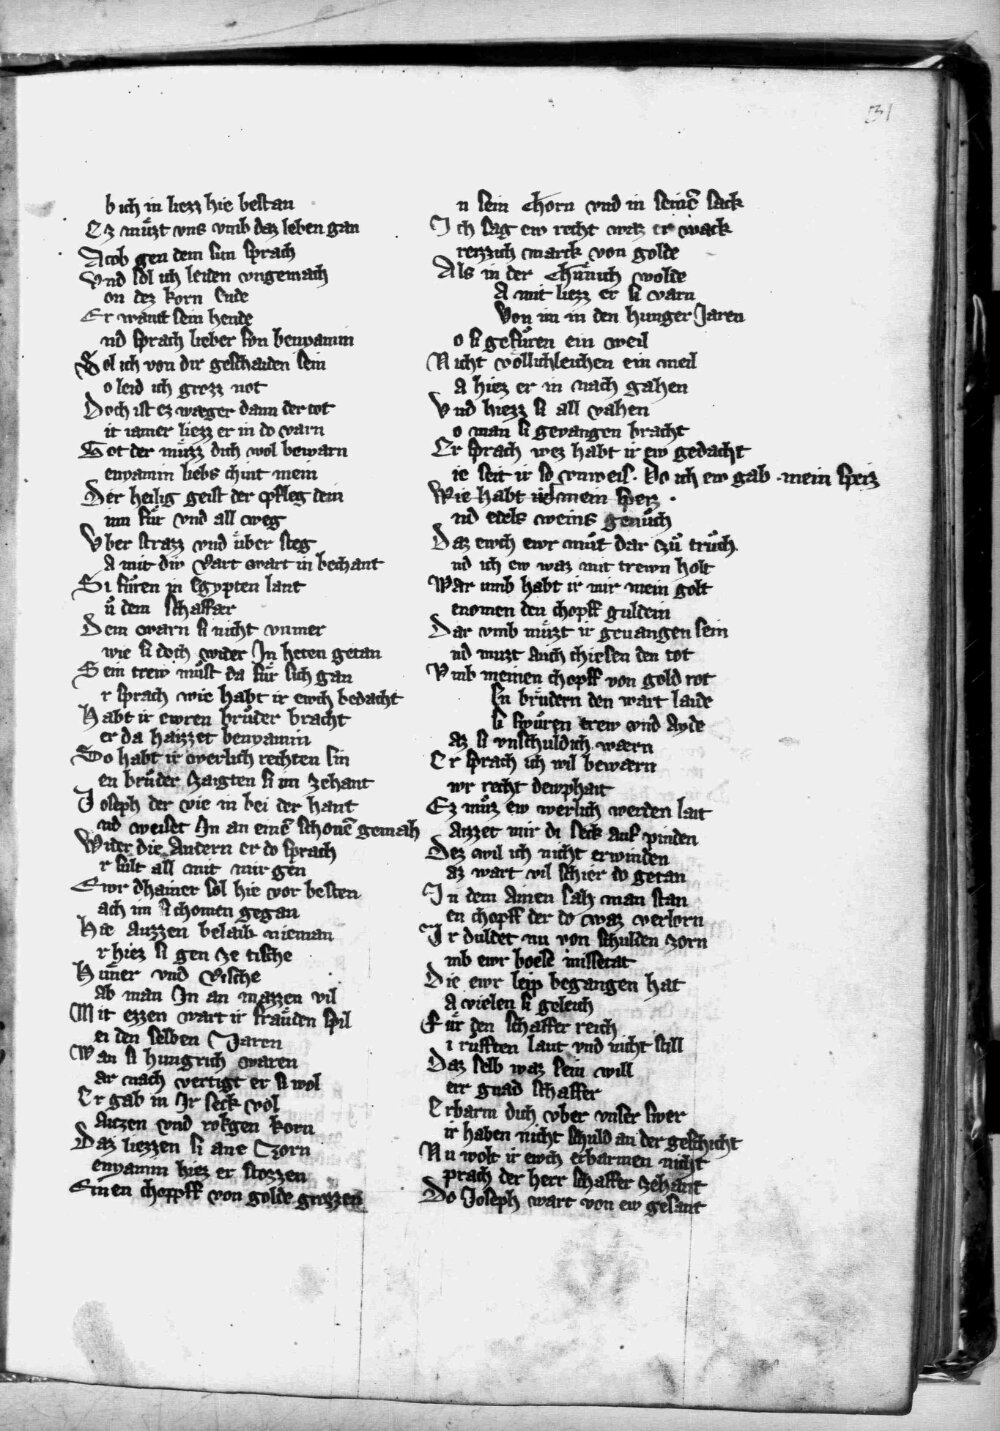 31
b ich in liezz hie bestan
Ez můzt vns vmb daz leben gan
Acob gen dem sun sprach
Vnd sol ich leiden vngemach
on dez korn ende
Er want sein hende
nd sprach lieber sun benyamin
Sol ich von dir geschaiden sein
o leid ich grozz not
Doch ist ez wæger dann der tot
it iamer liezz er in do varn
Got der můzz dich wol bewarn
enyamin liebs chint mein
Der heilig geist der pfleg dein
im für vnd all weg
Vber strazz vnd über steg
A mit div vart wart in bechant
Si fůren in Egypten lant
ů dem schaffar
Dem warn si nicht vnmer
wie si doch wider In heten getan
Sein trew můst da für sich gan
r sprach wie habt ir ewch bedacht
Habt ir ewren brůder bracht
er da haizzet benyamin
Do habt ir werlich rechten sin
en brůder zaigten si im zehant
Joseph der vie in bei der hant
nd weiset In an einē schonē gemah
Wider die andern er do sprach
r sült all mit mir gen
Ewr dhainer sol hie vor besten
ach im si chomen gegan
Hie auzzen belaib nieman
r hiez si gen ze tische
Hůner vnd vische
ab man In an mazzen vil
Mit ezzen wart ir fræuden spil
ei den selben Jaren
Wan si hungrich waren
ar nach vertigt er si wol
Er gab in Jr seck vol
Aitzen vnd rokgen korn
Daz liezzen si ane Zorn
enyamin hiez er stozzen
Einen chopff von golde grozzen
n sein Chorn vnd in seinē sack
Ich sag ew recht waz er wack
reizzich marck von golde
Als in der Chünich wolde
A mit liezz er si varn
Von im in den hunger Jaren
o si gefůren ein weil
Nicht völlichleichen ein meil
A hiez er in nach gahen
Vnd hiezz si all vahen
o man si gevangen bracht
Er sprach wez habt ir ew gedacht
ie seit ir so vnweis. Do ich ew gab mein speiz
Wie habt ir mein speiz
nd edels weins genůch
Daz ewch ewr můt dar zů trůch
nd ich ew waz mit trewn holt
War umb habt ir mir mein golt
enomen den chopff guldein
Dar vmb můzt ir gevangen sein
nd muzt auch chiesen den tot
Vmb meinen chopff von gold rot
En brüdern den wart laide
Si swůren trew vnd ayde
az si vnschuldich wærn
Er sprach ich wil bewærn
wr recht dewphait
Ez můz ew werlich werden lait
Aizzet mir di seck auf pinden
Dez wil ich nicht erwinden
az wart vil schier do getan
In dem Ainen sah man stan
en chopff der do waz verlorn
Ir duldet nu von schulden zorn
mb ewr boese missetat
Die ewr leip begangen hat
A vielen si geleich
Für den schaffer reich
i růfften laut vnd nicht still
Daz selb waz sein will
err gnad schaffer
Erbarm dich vber vnser swer
ir haben nicht schuld an der geschicht
Nu wolt ir ewch erbarmen nicht
prach der herr schaffer zehant
Do Joseph wart von ew gesant